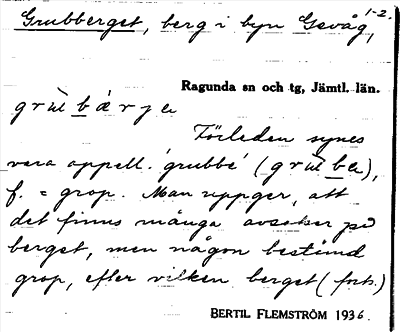 1-2.
Grubberget, berg i byn Gevåg,
Ragunda sn och tg, Jämtl. län.
grùbbǽrjɐ
Förleden synes
vara appell. 'grubbe' (grùbba),
f. = grop. Man uppger, att
det finns många avsatser på
berget, men någon bestämd
grop, efter vilken berget (forts.)
BERTIL FLEMSTRÖM 1936.